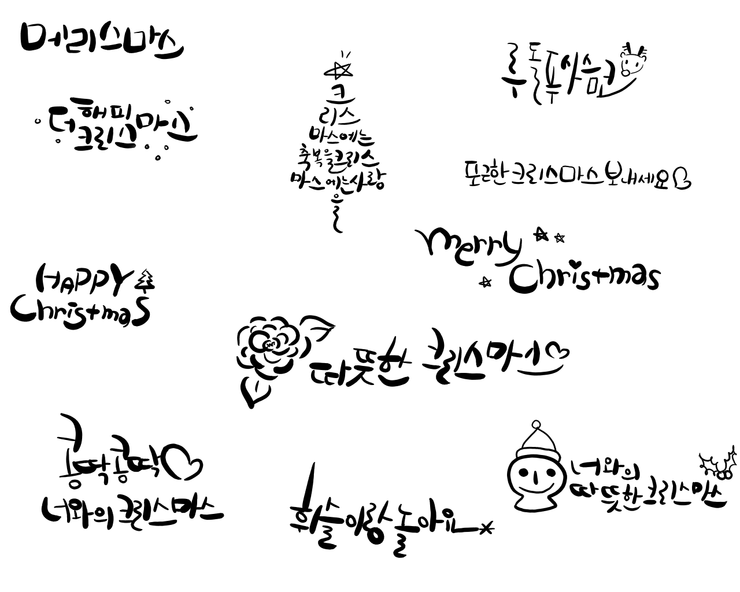 메리스마스
더 해피
크리스마스
크
리스
마스에는
축복을크리스
마스에는사랑
을
루돌푸사슴코
포근한 크리스마스 보내세요
Merry
Christmas
HAPPY
Christmas
따뜻한 크리스마스
콩딱콩딱
너와의 크리스마스
놀아요
너와의
따뜻한 크리스마스